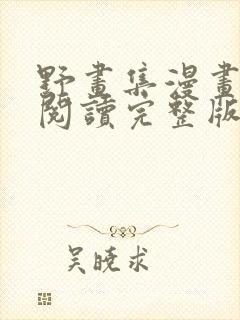 野畫集漫畫
閱讀完整版
吴曉求